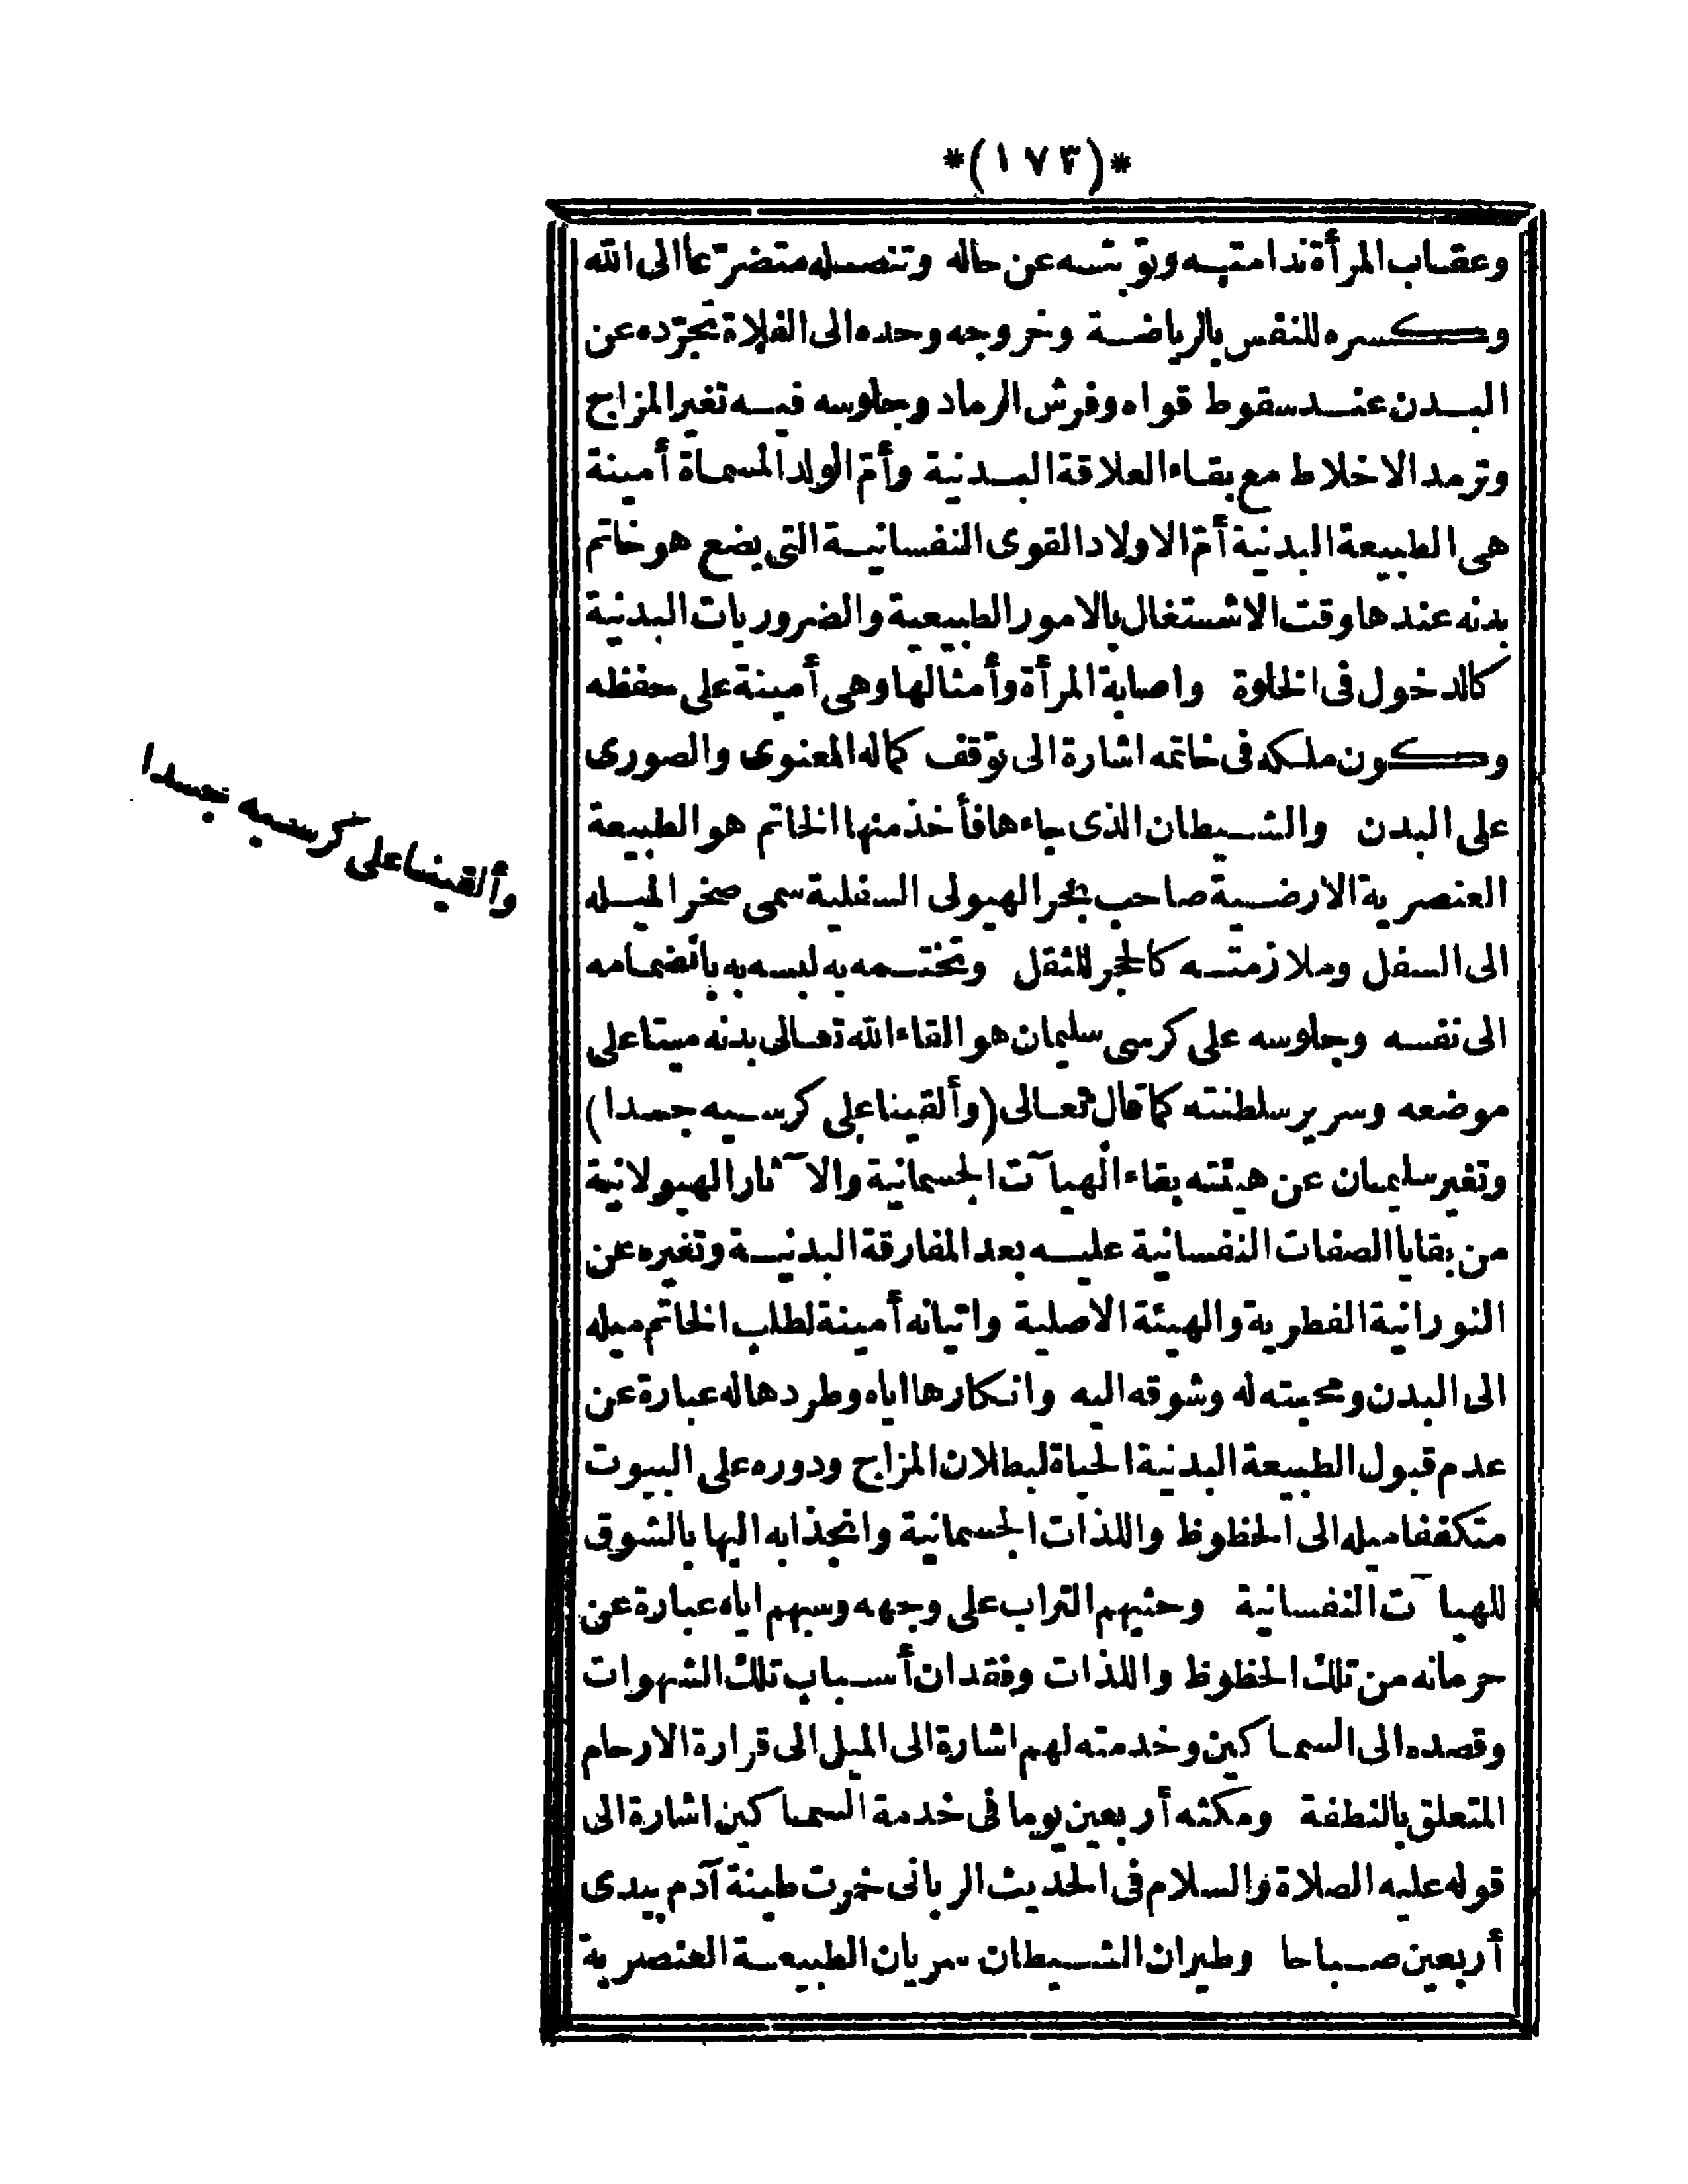 *(١٧٣)*
وعقاب المرأة ندامته وتوبته عن حاله وتنصله متضرعا الى الله
وكسره للنفس بالرياضة وخروجه وحده الى الفلاة تجرّده عن
البدن عند سقوط قواه وفرش الرماد وجلوسه فيه تغير المزاج
وترمد الاخلاط مع بقاء العلاقة البدنية وأمّ الولد المسماة أمينة
هى الطبيعة البدنية أمّ الاولاد القوى النفسانية التى يضع هو خاتم
بدنه عندها وقت الاشتغال بالامور الطبيعية والضروريات البدنية
كالدخول فى الخلوة واصابة المرأة وأمثالها وهى أمينة على حفظه
وكون ملكه فى خاتمه اشارة الى توقف كماله المعنوى والصورى
على البدن والشيطان الذى جاءها فأخذ منها الخاتم هو الطبيعة
العنصرية الارضية صاحب بحر الهيولى السفلية سمى صخر الميله
الى السفل وملازمته كالحجر للثقل وتختمه به لبسه به بانضمامه
الى نفسه وجلوسه على كرسى سليمان هو القاء الله تعالى بدنه ميتا على
موضعه وسرير سلطنته كما قال تعالى (وألقينا على كرسيه جسدا)
وتغير سليمان عن هيئته بقاء الهيآت الجسمانية والآثار الهيولانية
من بقايا الصفات النفسانية عليه بعد المفارقة البدنية وتغيره عن
النورانية الفطرية والهيئة الاصلية واتيانه أمينة لطلب الخاتم ميله
الى البدن ومحبته له وشوقه اليه وانكارها اياه وطردها له عبارة عن
عدم قبول الطبيعة البدنية الحياة لبطلان المزاج ودوره على البيوت
متكففا ميله الى الحظوظ واللذات الجسمانية وانجذابه اليها بالشوق
للهيآت النفسانية وحثيهم التراب على وجهه وسبهم اياه عبارة عن
حرمانه من تلك الحظوظ واللذات وفقدان أسباب تلك الشهوات
وقصده الى السماكين وخدمته لهم اشارة الى الميل الى قرارة الارحام
المتعلق بالنطفة ومكثه أربعين يوما فى خدمة السماكين اشارة الى
قوله عليه الصلاة والسلام فى الحديث الربانى خمرت طينة آدم بيدى
أربعين صباحا وطيران الشيطان سريان الطبيعة العنصرية
وألقينا على كرسيه جسدا